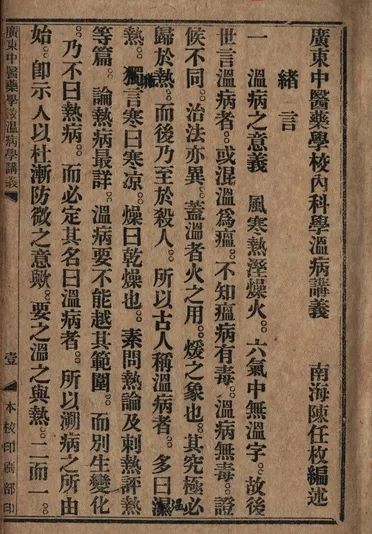 廣東中醫藥學校內科學溫病講義 南海陳任枚編述
緒言
一 溫病之意義 風寒熱溼燥火。六氣中無溫字。故後
世言溫病者。或混溫爲瘟。不知瘟病有毒。溫病無毒。證
候不同。治法亦異。蓋溫者火之用。煖之象也。其究極必
歸於熱。而後乃至於殺人。所以古人稱溫病者。多曰溫
熱。獨言寒曰寒凉。燥曰乾燥也。素問熱論及刺熱評熱
等篇。論熱病最詳。溫病要不能越其範圍。而別生變化
。乃不曰熱病。而必定其名曰溫病者。所以溯病之所由
始。卽示人以杜漸防微之意歟。要之溫之與熱。二而一。
廣東中醫藥學校溫病學講義 壹 本校印刷部印